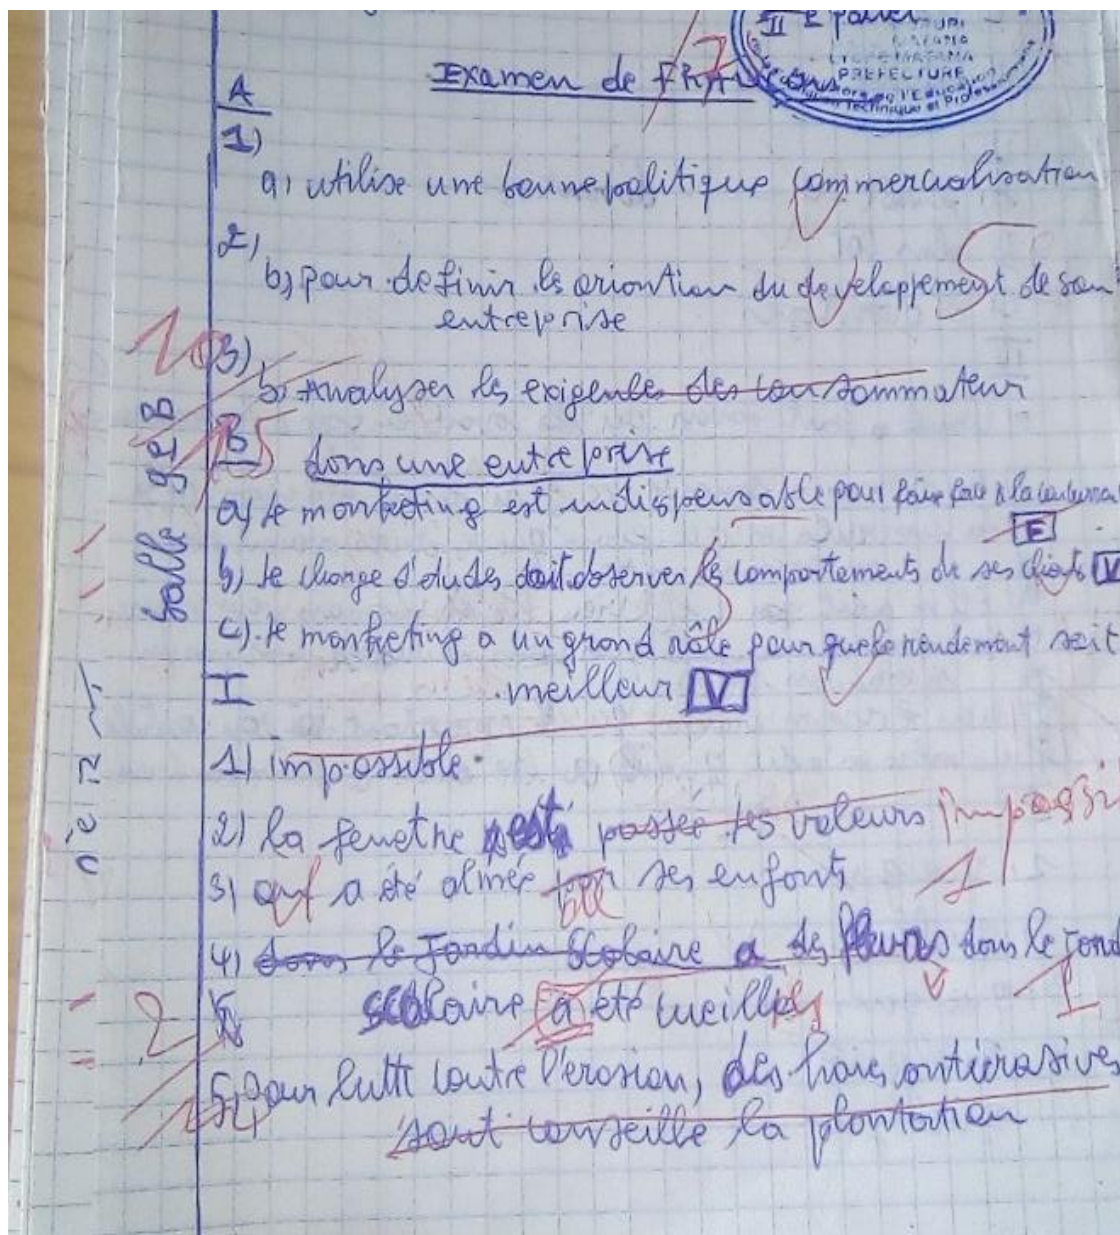 II è palier
PREFECTURE
Examen de
7
A
1)
a) utilise une bonne politique commercialisation
2)
b) pour definir les oriontion du developpement de son
entreprise
3)
b) Analyser les exigentes des consommateur
B
dans une entreprise
a) le marketing est indispensable pour faire face à la
F
b) le charge d'etudes doit observer les comportements de ses clients V
c). le marketing a un grand rôle pour que le rendement soit
meilleur V
I
1) impossible.
2) la fenetre est passée les voleurs impossi
3) a été aimée par ses enfants 1
4) dans le Jardin Scolaire a des fleurs dans le jard
scolaire a été cueillie 1
5) Pour lutte contre l'érosion, des haies antiérosives
sont conseillé la plantation
Salle 9eB
n°e 12
2